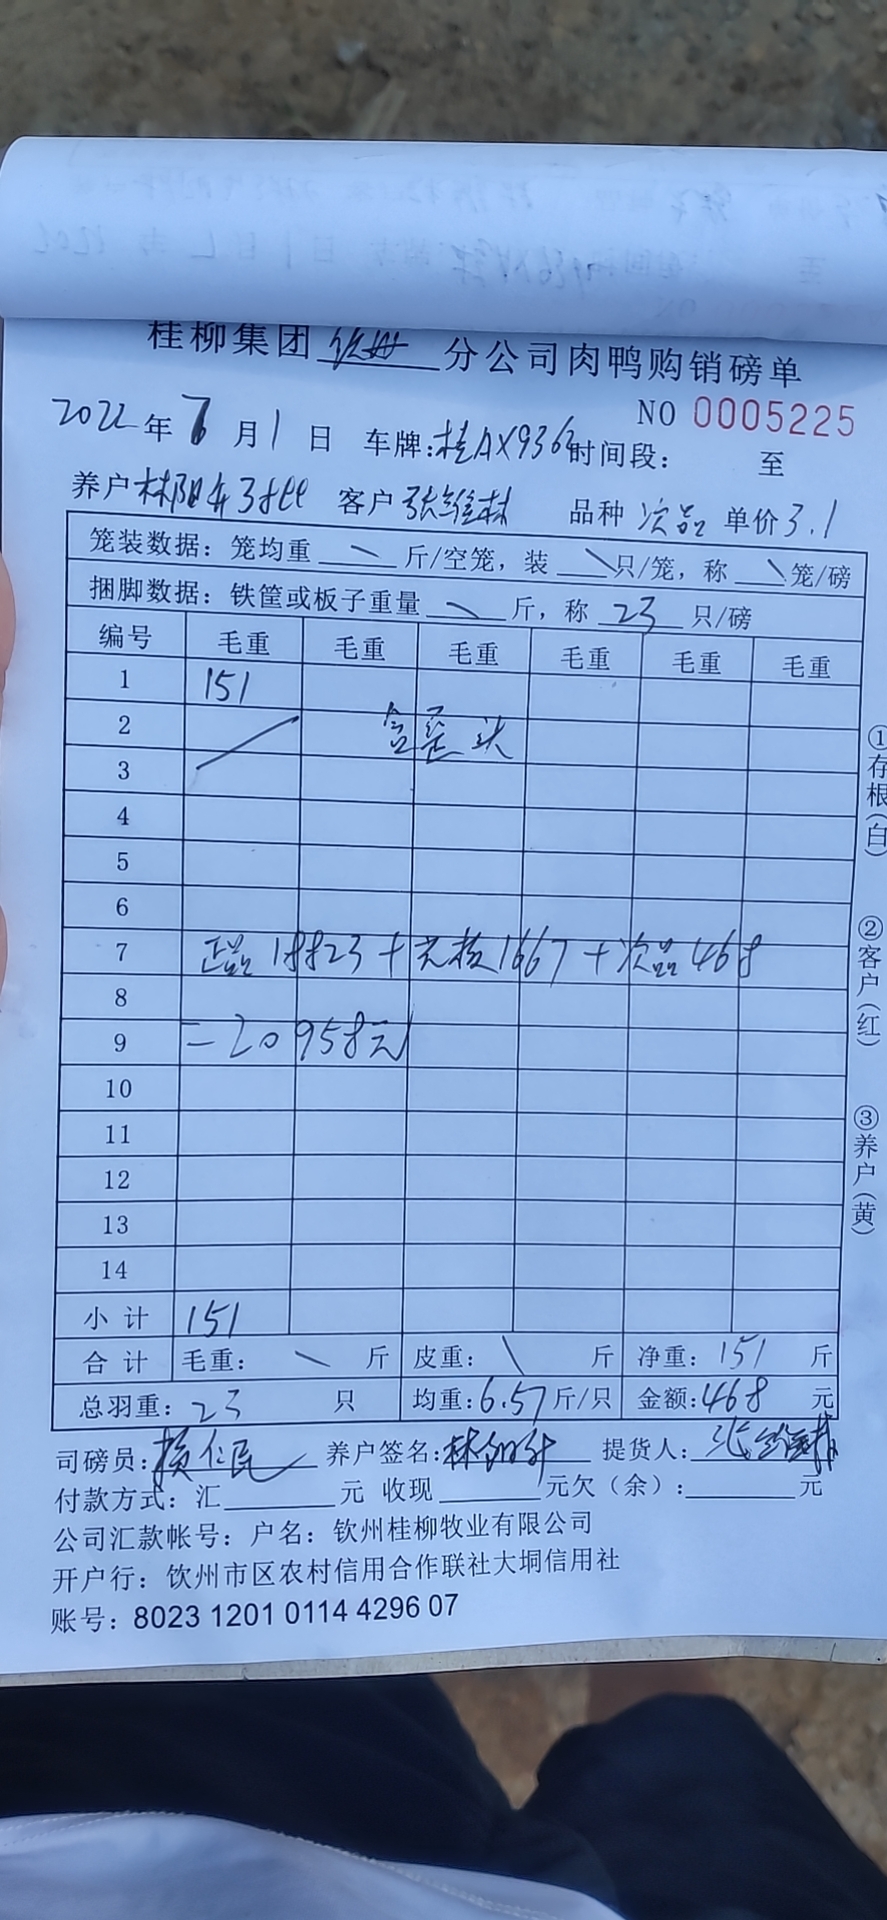 桂柳集团 钦州 分公司肉鸭购销磅单
NO 0005225
2022年7月1日 车牌:桂AX936 时间段: 至
养户 林阳 客户 张维林 品种 次品 单价 3.1
笼装数据:笼均重 \ 斤/空笼,装 \ 只/笼,称 \ 笼/磅
捆脚数据:铁筐或板子重量 \ 斤,称 23 只/磅
编号 毛重 毛重 毛重 毛重 毛重 毛重
1 151
2 含歪头
3
4
5
6
7 正品18823+光核1667+次品468
8
9 =20958元
10
11
12
13
14
小计 151
合计 毛重: \ 斤 皮重: \ 斤 净重:151 斤
总羽重:23 只 均重:6.57斤/只 金额:468 元
司磅员: 仁民 养户签名:林 提货人:张维林
付款方式:汇 元 收现 元欠(余): 元
公司汇款帐号:户名:钦州桂柳牧业有限公司
开户行:钦州市区农村信用合作联社大垌信用社
账号:8023 1201 0114 4296 07
①存根(白)
②客户(红)
③养户(黄)